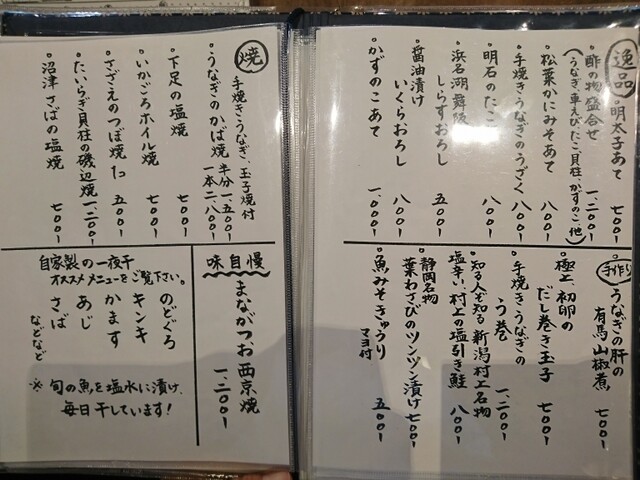 逸品
・明太子あて 七〇〇ー
・酢の物盛合せ 一、二〇〇ー
（うなぎ、車えび、たこ、貝柱、かずのこ他）
・松葉かにみそあて 八〇〇ー
・手焼きうなぎのうざく 八〇〇ー
・明石のたこ 八〇〇ー
・浜名湖舞阪
しらすおろし 五〇〇ー
・醤油漬け
いくらおろし 八〇〇ー
・かずのこあて 一、〇〇〇ー
手作り
うなぎの肝の
有馬山椒煮 七〇〇ー
・極上 初卵の
だし巻き玉子 七〇〇ー
・手焼きうなぎの
う巻 一、二〇〇ー
・知る人ぞ知る 新潟村上名物
塩辛い、村上の塩引き鮭 八〇〇ー
・静岡名物
葉わさびのツンツン漬け 七〇〇ー
・魚みそきゅうり 五〇〇ー
マヨ付
焼
手焼きうなぎ、玉子焼付
・うなぎのかば焼 半分 一、五〇〇ー
一本 二、八〇〇ー
・下足の塩焼 七〇〇ー
・いかごろホイル焼 七〇〇ー
・さざえのつぼ焼 1コ 五〇〇ー
・たいらぎ貝柱の磯辺焼 一、二〇〇ー
・沼津 さばの塩焼 七〇〇ー
味自慢
まながつお西京焼 一、二〇〇ー
自家製の一夜干
オススメメニューをご覧下さい。
のどぐろ
キンキ
かます
あじ
さば
などなど
※ 旬の魚を塩水に漬け、
毎日干しています！